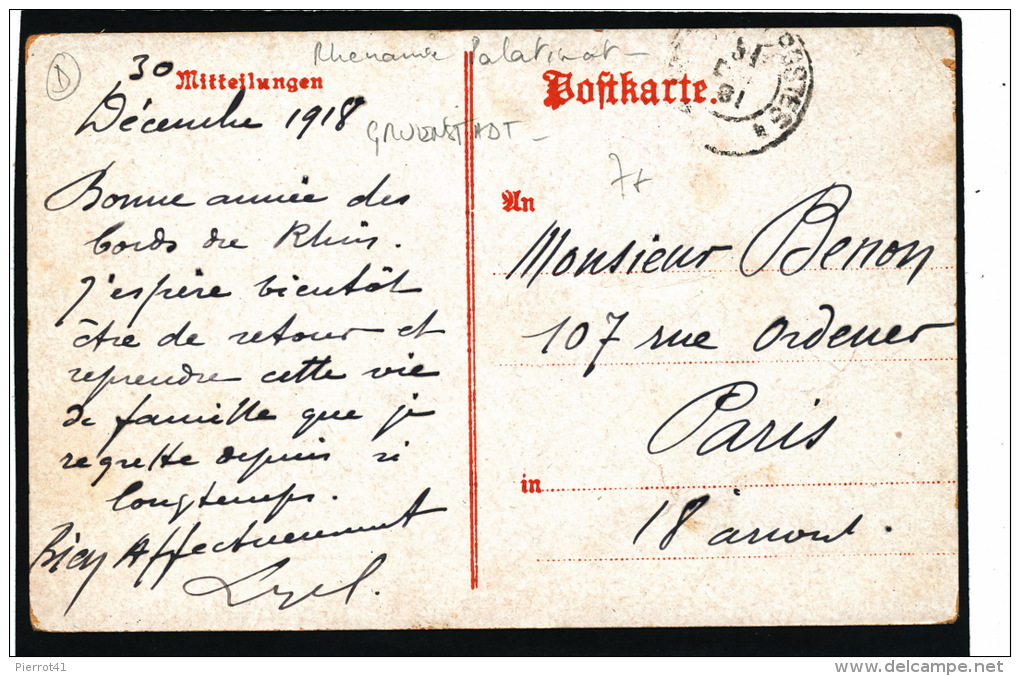 D
Rhenanie Palatinat -
30
Mitteilungen
Décembre 1918
GRUENSTADT -
Bonne année des
bords du Rhin.
J'espère bientôt
être de retour et
reprendre cette vie
de famille que je
regrette depuis si
longtemps.
Bien Affectueusement
Postkarte.
POSTES
An
Monsieur Benon
107 rue Ordener
Paris
in
18 arront.
Pierrot41
www.delcampe.net